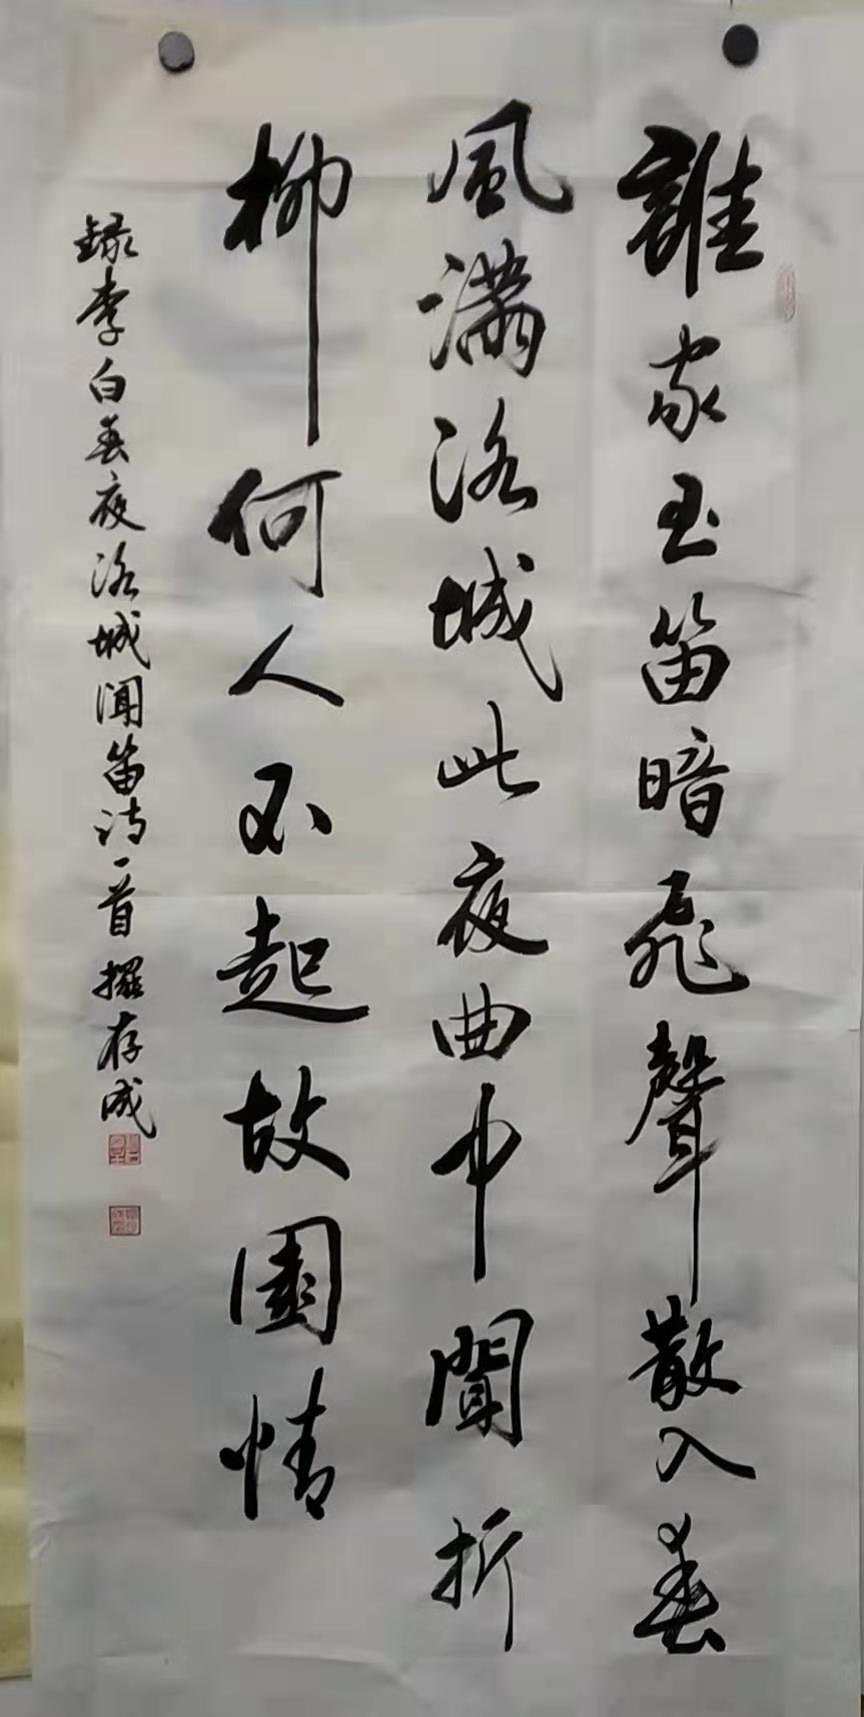 誰家玉笛暗飛聲散入春
風滿洛城此夜曲中聞折
柳何人不起故園情
録李白春夜洛城聞笛诗一首 存成